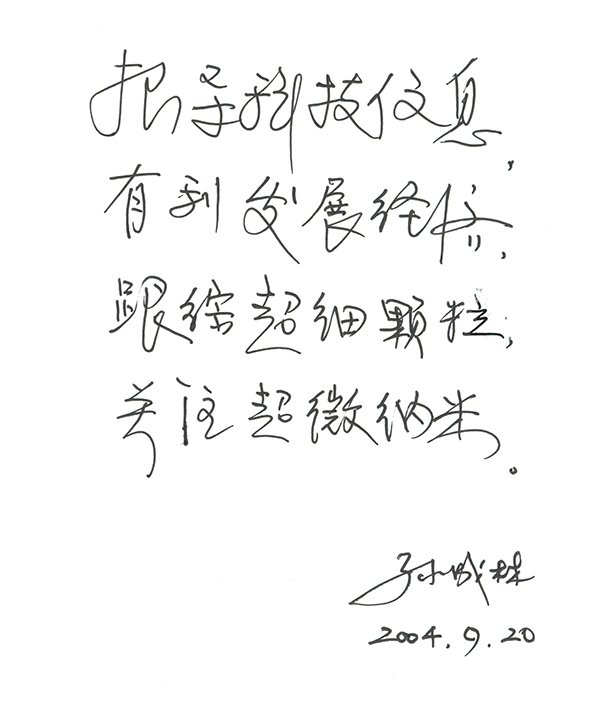 报导科技信息,
有利发展经济,
跟综超细颗粒,
关注超微纳米。
孙成林
2004.9.20